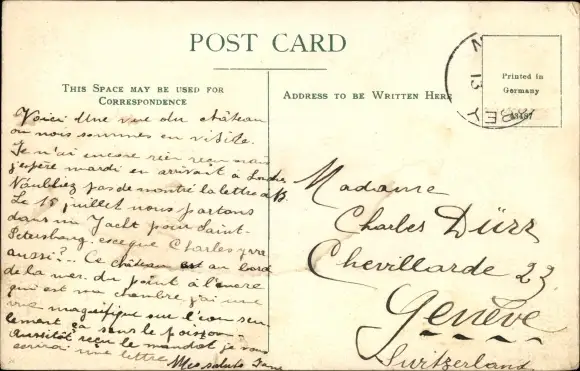 POST CARD
THIS SPACE MAY BE USED FOR
CORRESPONDENCE
ADDRESS TO BE WRITTEN HERE
Printed in
Germany
Voici une vue du château
ou nous sommes en visite.
Je n'ai encore rien reçu mais
j'espère mardi en arrivant à
N'oubliez pas de montré la lettre à B.
Le 15 juillet nous partons
dans un Yacht pour Saint-
Petersbourg. esceque Charles y
aussi?.. Ce château est au bord
de la mer. du point à l'encre
qui est ma chambre j'ai une
vue magnifique sur l'eau seu-
lement ça sens le poisson.
Aussitôt reçu le mandat je vous
ecrirai une lettre
Mes saluts
Madame
Charles Dürr
Chevillarde 23
Genève
Switzerland